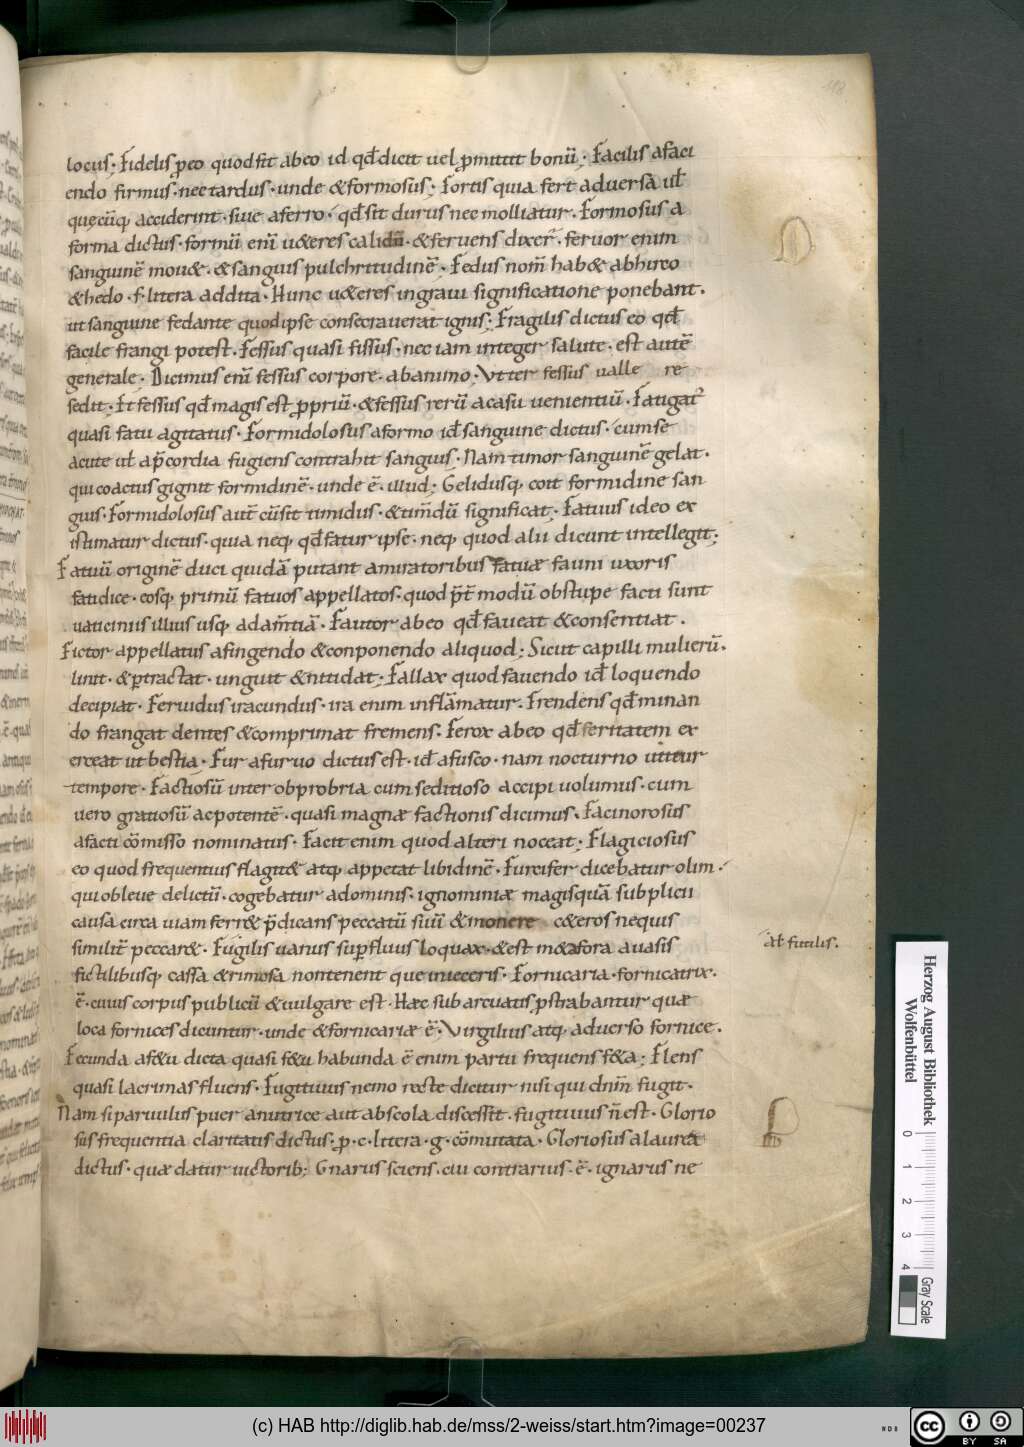 118
locus; Fidelis ꝑeo quod fit abeo id qđ dicit uel ꝓmittit bonū; Facilis afaci
endo firmus· nec tardus· unde &formosus; Fortis quia fert aduersa ul̄
quęcūq; acciderint· siue aferro· qđ sit durus nec molliatur. Formosus a
forma dictus· formū eni᷎ u&eres calidū· &feruens dixer̄· feruor enim
sanguinē mou&· &sanguis pulchritudinē· Fedus nom̄ hab& abhirco
&hedo· f· littera addita· Hunc u&eres ingraui significatione ponebant·
ut sanguine fedante quod ipse consecrauerat ignis; Fragilis dictus eo qđ
facile frangi potest· Fessus quasi fissus· nec iam integer salute· est autē
generale· Dicimus enī fessus corpore· ab animo; Vt ter fessus ualle re
sedit· Et fessus qđ magis est ꝓpriū· &fessus rerū a casu uenientiū· Fatigat᷒
quasi fatu agitatus· Formidolosus aformo id᷎ sanguine dictus· cum se
acute ul̄ ap̄cordia fugiens contrahit sanguis· Nam timor sanguinē gelat·
qui coactus gignit formidinē· unde ē· illud; Gelidusq; coit formidine san
guis· Formidolosus aut̄ cū sit timidus· &tim̄dū significat; Fatuus ideo ex
istimatur dictus· quia neq; qđ fatur ipse· neq; quod alii dicunt intellegit;
Fatuū originē duci quidā putant amiratoribus fatuæ fauni uxoris
fatidice· eosq; primū fatuos appellatos· quod p̄t̄ modū obstupe facti sunt
uaticiniis illius usq; adam̄tiā· Fautor abeo qđ faueat &consentiat.
Fictor appellatus afingendo &conponendo aliquod; Sicut capilli mulierū·
linit· &ꝑtractat· unguit &nitidat; Fallax quod fauendo id᷎ loquendo
decipiat· Feruidus iracundus· ira enim inflāmatur· Frendens qđ minan
do frangat dentes &comprimat fremens· Ferox abeo qđ feritatem ex
erceat ut bestia· Fur afuruo dictus est· id᷎ afusco· nam nocturno utitur
tempore· Factiosū inter obprobria cum seditioso accipi uolumus· cum
uero gratiosū ac potentē· quasi magnæ factionis dicimus· Facinorosus
afacti cōmisso nominatus· Facit enim quod alteri noceat; Flagiciosus
eo quod frequentius flagit& atq; appetat libidinē· Furcifer dicebatur olim·
qui obleue delictū· cogebatur adominis· ignominiæ magisquā subplicii
causa circa uiam ferr& p̄dicans peccatū suū &monere c&eros nequis
similit᷎ peccar&· Fugilis uanus suꝑfluus loquax· &est m&afora auasis
fictilibusq; cassa &rimosa nontenent que inieceris· Fornicaria· fornicatrix·
ē· cuius corpus publicū &uulgare est· Hæc sub arcuatis ꝓstrabantur quæ
loca fornices dicuntur· unde &fornicariæ ē· Virgilius atq; aduerso fornice·
Fecunda af&u dicta quasi f&u habunda ē enim partu frequens f&a; Flens
quasi lacrimas fluens· Fugitiuus nemo recte dicitur nisi qui dn̄m fugit·
Nam si paruulus puer anutrice aut ab scola discessit· fugitiuus n̄ est· Glorio
sus frequentia claritatis dictus· ꝓ· c· littera· g· cōmutata· Gloriosus alaurea
dictus· quæ datur uictorib; Gnarus sciens· cui contrarius· ē· ignarus ne
al̄ futilis.
Herzog August Bibliothek
Wolfenbüttel
0 1 2 3 4
Gray Scale
(c) HAB http://diglib.hab.de/mss/2-weiss/start.htm?image=00237
cc BY SA